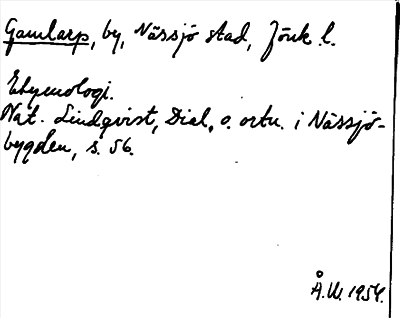 Gamlarp, by, Nässjö stad, Jönk. l.
Etymologi.
Nat. Lindqvist, Dial. o. ortn. i Nässjö-
bygden, s. 56.
Å.W. 1954.